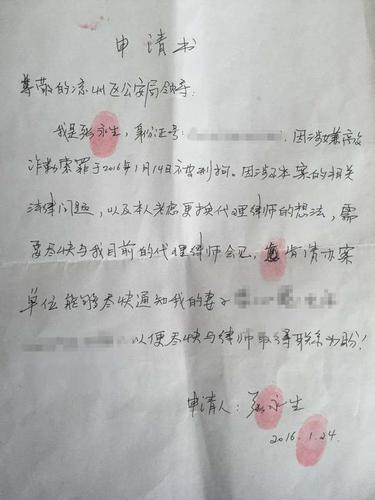 申请书
尊敬的凉州区公安局领导:
我是张永生,身份证号: 因涉嫌敲
诈勒索罪于2016年1月14日被刑拘。因涉及本案的相关
法律问题,以及本人考虑更换代理律师的想法,需
要尽快与我目前的代理律师会见,恳肯请办案
单位能够尽快通知我的妻子
以便尽快与律师取得联系为盼!
申请人:张永生
2016.1.24.